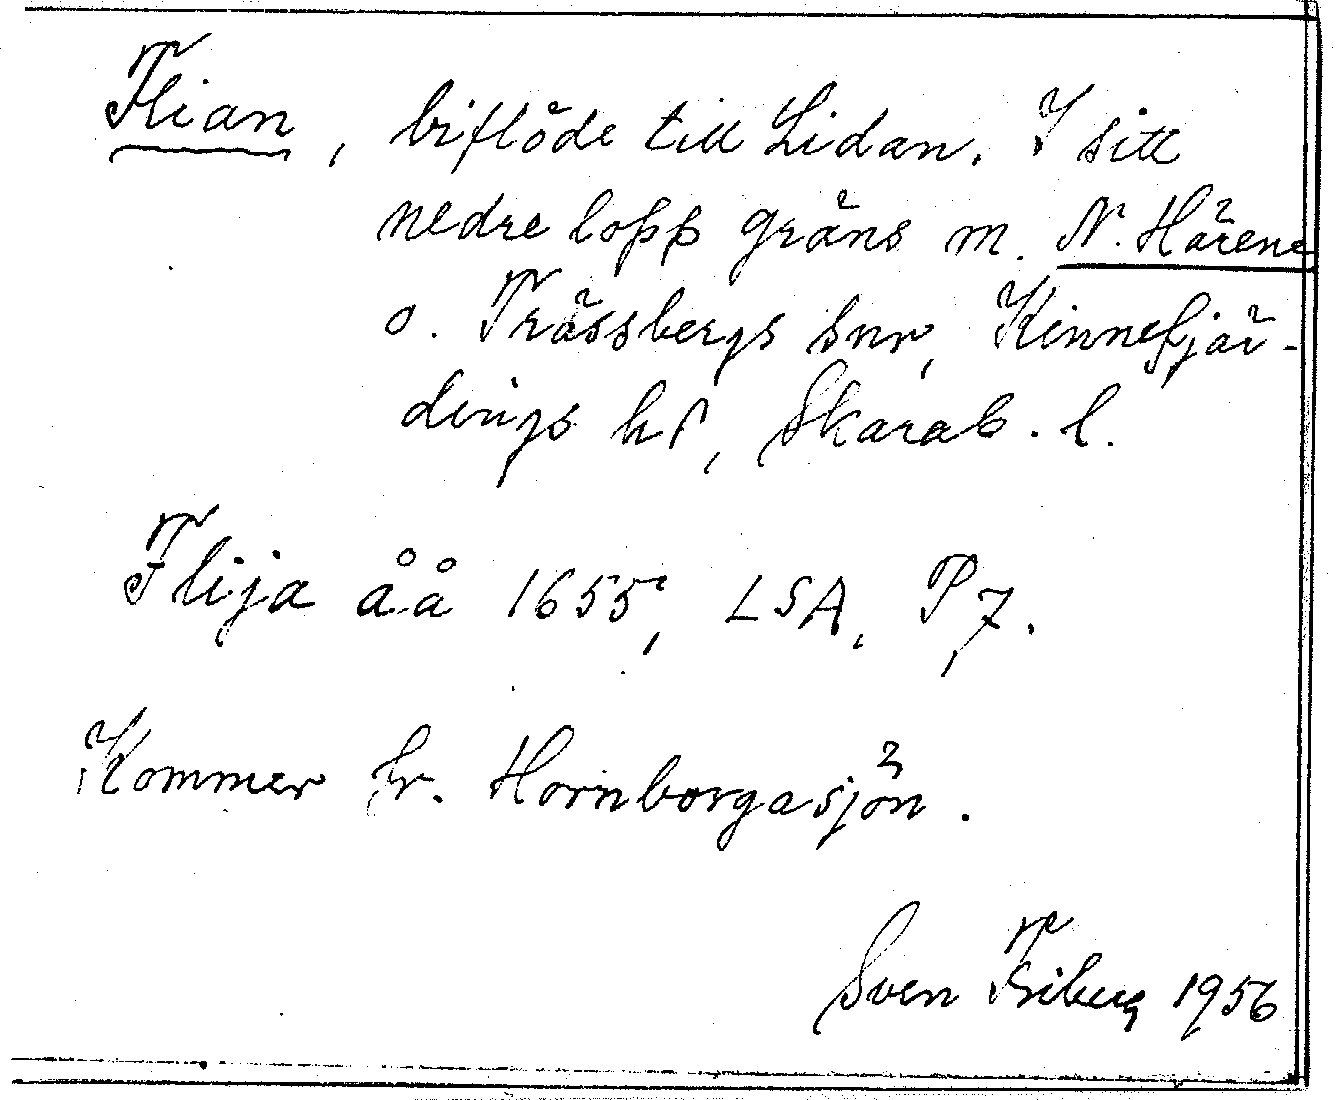 Flian, biflöde till Lidan. I sitt
nedre lopp gräns m. N. Härene
o. Trässbergs snr, Kinnefjär-
dings hd, Skarab. l.
Flija åå 1655, LSA, P7.
Kommer fr. Hornborgasjön.
Sven Friberg 1956